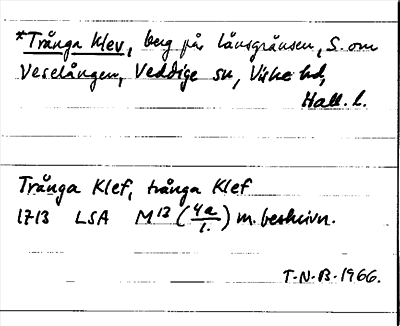 *Trånga Klev, berg på länsgränsen, S. om
Veselången, Veddige sn, Viske hd,
Hall. l.
Trånga Klef, trånga Klef
1713 LSA M13 (4a/1.) m. beskrivn.
T-N-B-1966.